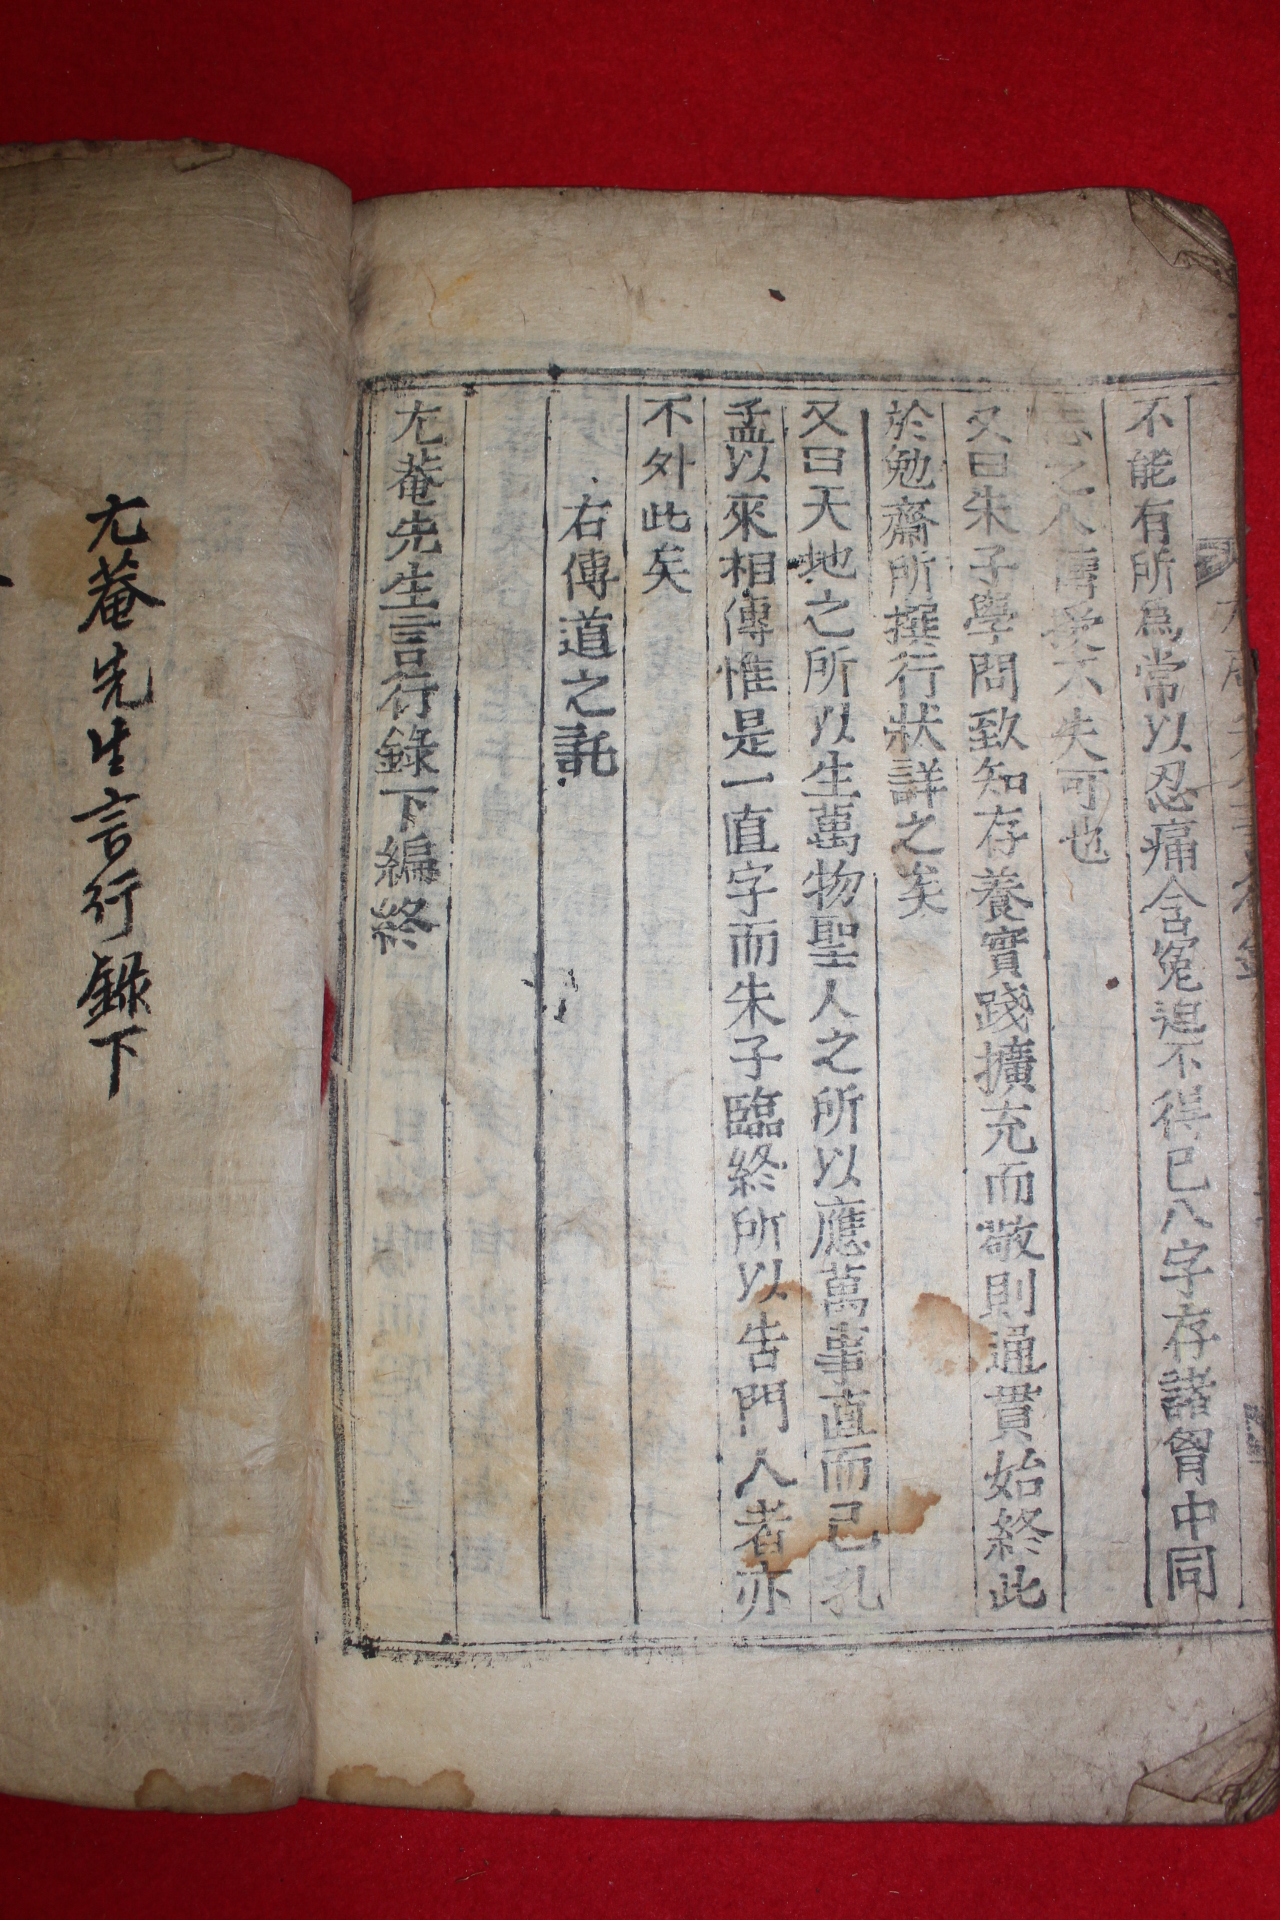 不能有所爲常以忍痛含冤迫不得已八字存諸胷中同
志之人傳受不失可也
又曰朱子學問致知存養實踐擴充而敬則通貫始終此
於勉齋所撰行狀詳之矣
又曰天地之所以生萬物聖人之所以應萬事直而已孔
孟以來相傳惟是一直字而朱子臨終所以告門人者亦
不外此矣
右傳道之託
尢菴先生言行錄下編終
尢菴先生言行錄下